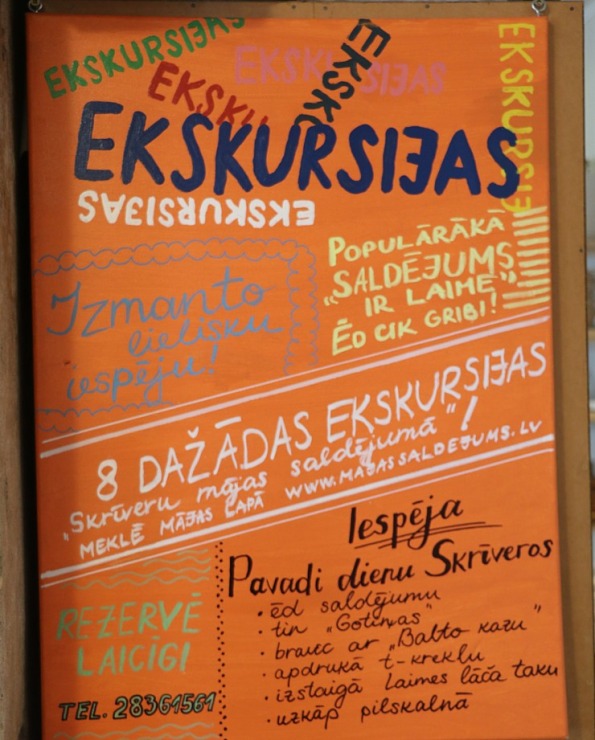 EKSKURSIJAS
EKSKU
EKSKURSIJAS
EKSK
EKSKURSIJ
EKSKURSIJAS
EKSKURSIJAS
Izmanto
lielisku
iespēju!
POPULĀRĀKĀ
„SALDĒJUMS
IR LAIME”
ĒD CIK GRIBI!
8 DAŽĀDAS EKSKURSIJAS
„Skrīveru mājas saldējumā”!
MEKLĒ MĀJAS LAPĀ WWW.MAJASSALDEJUMS.LV
Iespēja
Pavadi dienu Skrīveros
· ēd saldējumu
· tin „Gotiņas”
· brauc ar „Balto kazu”
· apdrukā t-kreklu
· izstaigā Laimes lāča taku
· uzkāp pilskalnā
REZERVĒ
LAICĪGI
TEL. 28361561